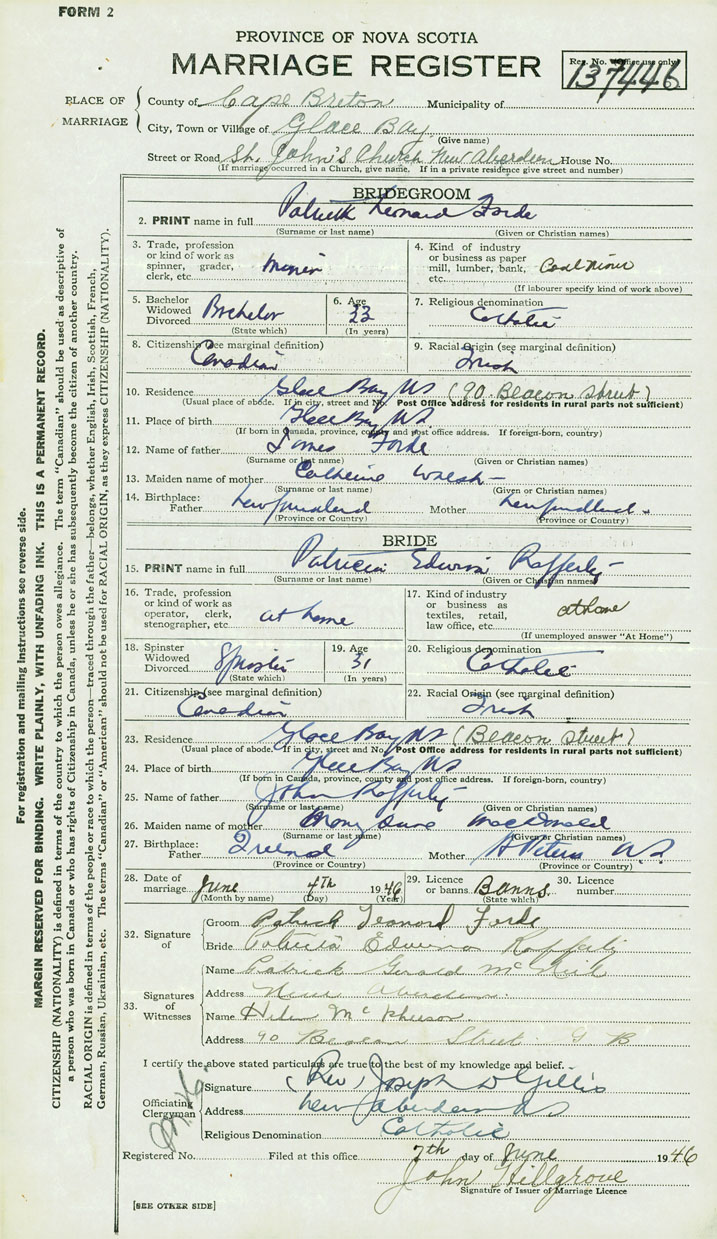 FORM 2
PROVINCE OF NOVA SCOTIA
MARRIAGE REGISTER
Reg. No. (Office use only)
137446
PLACE OF MARRIAGE
County of Cape Breton Municipality of
City, Town or Village of Glace Bay
(Give name)
Street or Road St. John's Church New Aberdeen House No.
(If marriage occurred in a Church, give name. If in a private residence give street and number)
BRIDEGROOM
2. PRINT name in full Patrick Leonard Forde
(Surname or last name) (Given or Christian names)
3. Trade, profession or kind of work as spinner, grader, clerk, etc. Miner
4. Kind of industry or business as paper mill, lumber, bank, etc. Coal Miner
(If labourer specify kind of work above)
5. Bachelor Widowed Divorced Bachelor
(State which)
6. Age 23
(In years)
7. Religious denomination Catholic
8. Citizenship (see marginal definition) Canadian
9. Racial Origin (see marginal definition) Irish
10. Residence Glace Bay NS (90 Beacon Street)
(Usual place of abode. If in city, street and No. Post Office address for residents in rural parts not sufficient)
11. Place of birth Glace Bay NS.
(If born in Canada, province, county and post office address. If foreign-born, country)
12. Name of father James Forde
(Surname or last name) (Given or Christian names)
13. Maiden name of mother Catherine Walsh
(Surname or last name) (Given or Christian names)
14. Birthplace: Father Newfoundland Mother Newfoundland
(Province or Country) (Province or Country)
BRIDE
15. PRINT name in full Patricia Edwina Rafferty
(Surname or last name) (Given or Christian names)
16. Trade, profession or kind of work as operator, clerk, stenographer, etc. at home
17. Kind of industry or business as textiles, retail, law office, etc. at home
(If unemployed answer "At Home")
18. Spinster Widowed Divorced Spinster
(State which)
19. Age 31
(In years)
20. Religious denomination Catholic
21. Citizenship (see marginal definition) Canadian
22. Racial Origin (see marginal definition) Irish
23. Residence Glace Bay NS (Beacon Street)
(Usual place of abode. If in city, street and No. Post Office address for residents in rural parts not sufficient)
24. Place of birth Glace Bay NS
(If born in Canada, province, county and post office address. If foreign-born, country)
25. Name of father John Rafferty
(Surname or last name) (Given or Christian names)
26. Maiden name of mother Mary MacDonald
(Surname or last name) (Given or Christian names)
27. Birthplace: Father Ireland Mother St Peters N.S.
(Province or Country) (Province or Country)
28. Date of marriage June 4th 1946
(Month by name) (Day) (Year)
29. Licence or banns Banns
(State which)
30. Licence number
32. Signature of
Groom Patrick Leonard Forde
Bride Patricia Edwina Rafferty
33. Signatures of Witnesses
Name Patrick Gerald McNeil
Address New Aberdeen.
Name Helen McPherson
Address 90 Beacon Street G B
I certify the above stated particulars are true to the best of my knowledge and belief.
Officiating Clergyman
Signature (Rev) Joseph D Gillis
Address New Aberdeen NS
Religious Denomination Catholic
Registered No. Filed at this office 7th day of June 1946
John Hillgrove
Signature of Issuer of Marriage Licence
[SEE OTHER SIDE]
For registration and mailing instructions see reverse side.
MARGIN RESERVED FOR BINDING. WRITE PLAINLY, WITH UNFADING INK. THIS IS A PERMANENT RECORD.
CITIZENSHIP (NATIONALITY) is defined in terms of the country to which the person owes allegiance. The term "Canadian" should be used as descriptive of
a person who was born in Canada or who has rights of Citizenship in Canada, unless he or she has subsequently become the citizen of another country.
RACIAL ORIGIN is defined in terms of the people or race to which the person—traced through the father—belongs, whether English, Irish, Scottish, French,
German, Russian, Ukrainian, etc. The terms "Canadian" or "American" should not be used for RACIAL ORIGIN, as they express CITIZENSHIP (NATIONALITY).